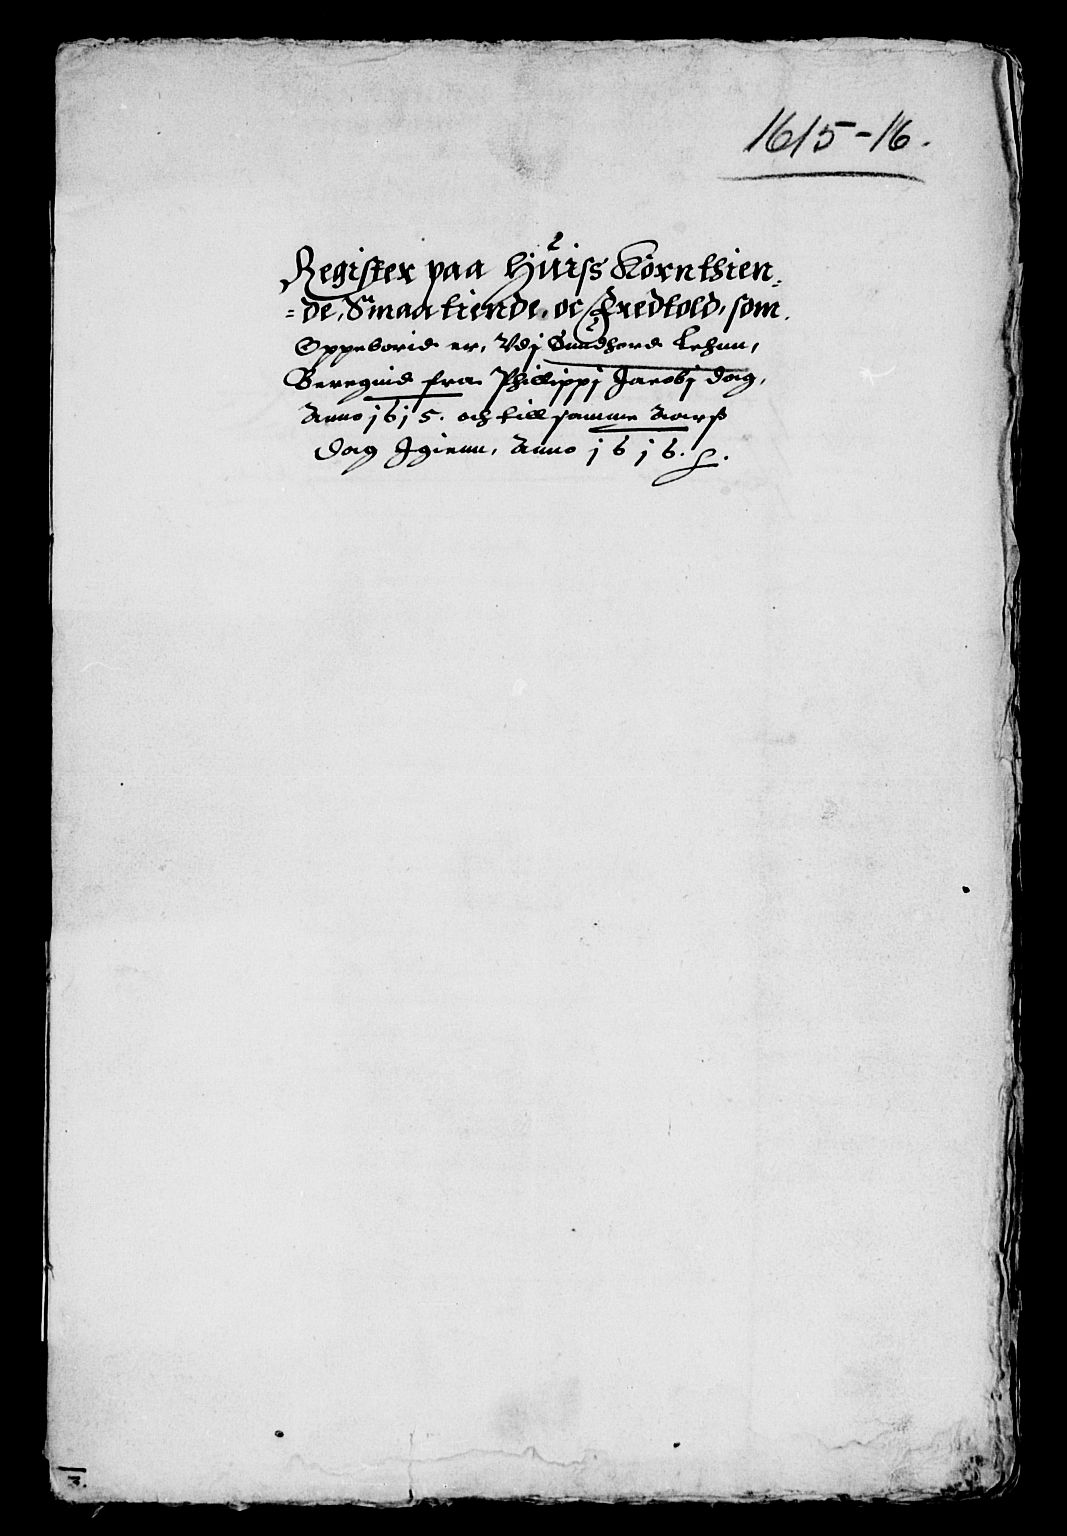 1615-16.
Register paa Huiss Kornthien-
-de, Smaatiende, oc Fredtold, som
Oppeborid er, Vdj Sundherd Lehnn,
Beregnid fra Phillippj Jacobj dag,
Anno 1615. och till samme Aarß
dag Igienn, Anno 1616.
3.